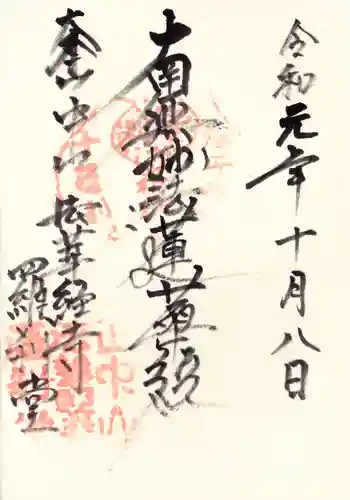 令和元年十月八日
南無妙法蓮華経
奉
中山法華経寺
羅刹堂